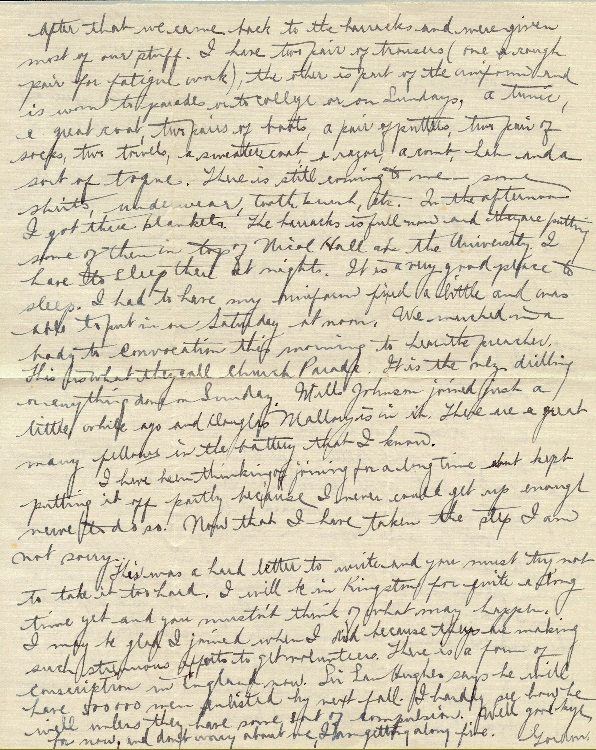 after that we came back to the barracks and were given
most of our stuff. I have two pair of trousers (one a rough
pair for fatigue work), the other is part of the uniform and
is worn to parades or to college or on Sundays, a tunic,
a great coat, two pairs of boots, a pair of puttees, two pair of
socks, two towels, a sweater coat a razor, a comb, hat and a
sort of togue. There is still coming to me some
shirts, underwear, tooth brush, etc. In the afternoon
I got three blankets. The barracks is full now and they are putting
some of them in top of Nicol Hall at the University. I
have to sleep there at nights. It is a very good place to
sleep. I had to have my uniform fixed a little and was
able to put it on Saturday at noon. We marched in a
body to Convocation this morning to hear the preacher.
This is what they call Church Parade. It is the only drilling
or anything done on Sunday. Mills Johnson joined just a
little while ago and Douglas Mallory is in it. There are a great
many fellows in the battery that I know.
I have been thinking of joining for a long time but kept
putting it off partly because I never could get up enough
nerve to do so. Now that I have taken the step I am
not sorry.
This was a hard letter to write and you must try not
to take it too hard. I will be in Kingston for quite a long
time yet and you mustn't think of what may happen.
I may be glad I joined when I did because they are making
such strenuous efforts to get volunteers. There is a form of
conscription in England now. Sir Sam Hughes says he will
have 500000 men enlisted by next fall. I hardly see how he
will unless they have some sort of compulsion. Well good bye
for now, and don't worry about me, I am getting along fine. Gordon.